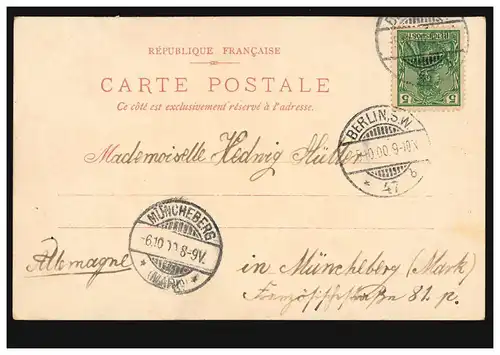 RÉPUBLIQUE FRANÇAISE
CARTE POSTALE
Ce côté est exclusivement réservé à l'adresse.
REICHSPOST
5 5
BERLIN, S.W.
10.00 9-10V.
* 47 b
Mademoiselle Hedwig
MÜNCHEBERG
-6.10.00.8-9V.
* (MARK) *
Allemagne
in Müncheberg (Mark)
Französischestraße 81. p.